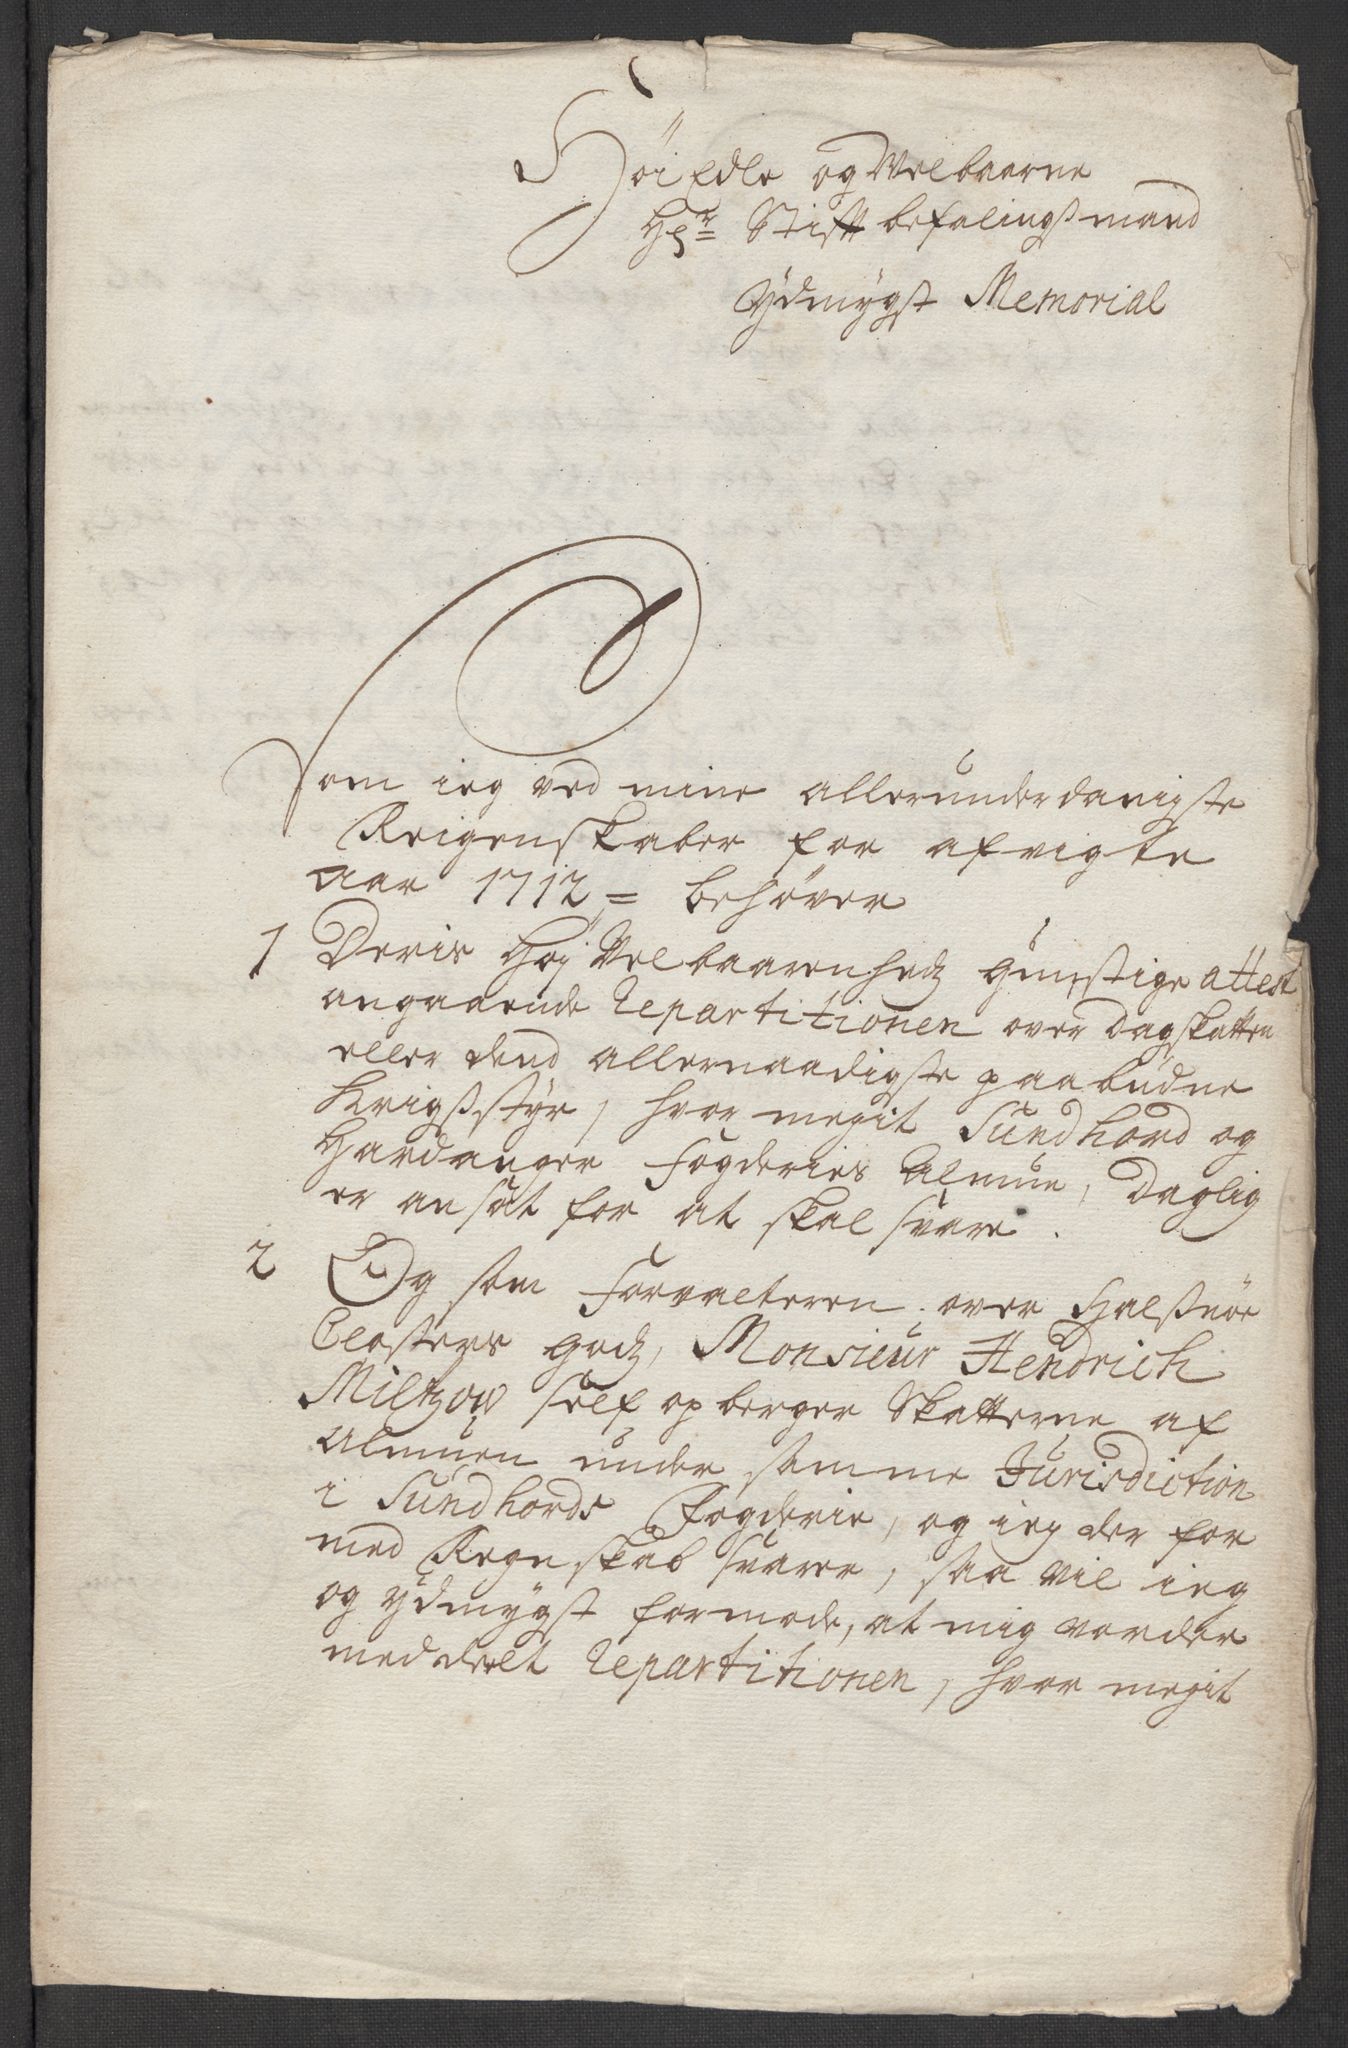 Høi Edle og Velbaarne
Hr Stiftbefalingsmand
Ydmygst Memorial
Som ieg ved mine allerunderdanigste
Reigenskaber for afvigte
aar 1712 = behøver
1 Deris Høj Velbaarenhedz gunstige attest
angaaende Repartitionen over Dagskatten
eller dend allernaadigste paabudne
Krigsstyr, hvor megit Sundhord og
Hardanger Fogderies Almue, Daglig
er ansat for at skal svare.
2 Og som Forvalteren over Halsnöe
Closters godz, Monsieur Hendrich
Miltzow self opberger Skatterne af
Almuen under samme Jurisdiction
i Sundhords Fogderie, og ieg der for
med Regnskab svarer, saa vil ieg
og ydmygst formode, at mig vorder
meddeelt Repartitionen, hvor megit